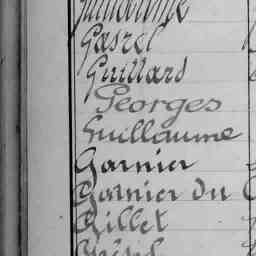 Gasrel
Guillard
Georges
Guillaume
Garnier
Garnier Du
Gillet